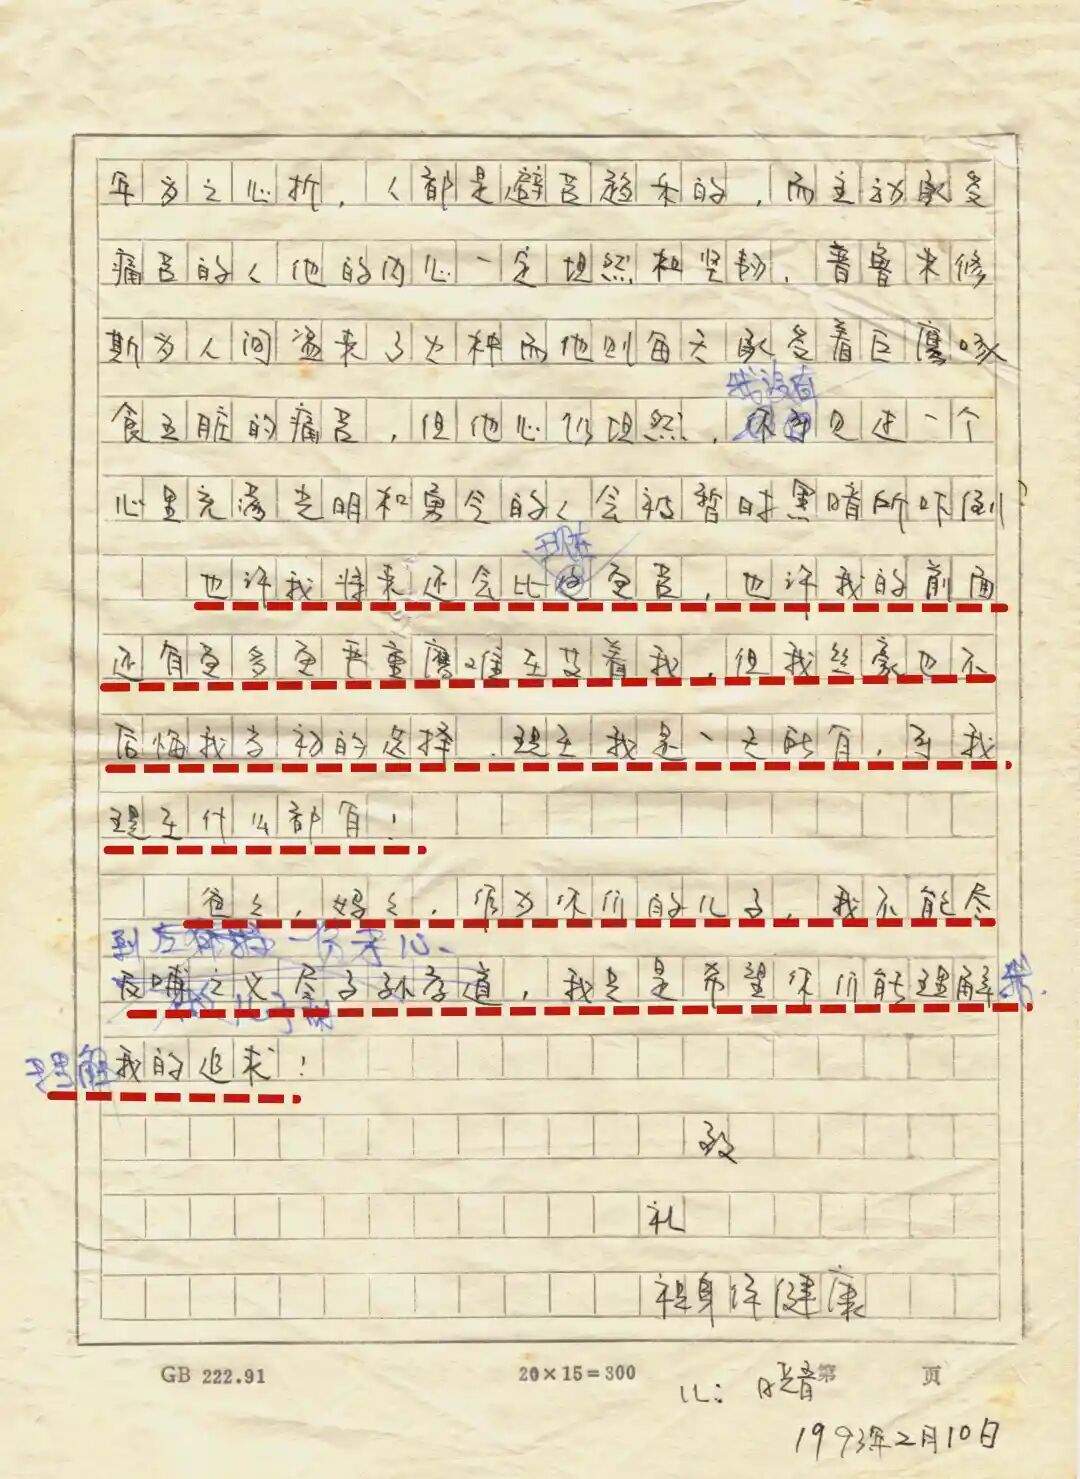 年为之心折，人都是避苦趋乐的，而主动承受
痛苦的人他的内心一定坦然和坚韧，普鲁米修
斯为人间盗来了火种而他则每天承受着巨鹰啄
我没有
食五脏的痛苦，但他心仍坦然，见过一个
心里充满光明和勇气的人会被暂时黑暗所吓倒
现在
也许我将来还会比这更苦，也许我的前面
还有更多更严重磨难在等着我，但我丝毫也不
后悔我当初的选择，现在我是一无所有，可我
现在什么都有！
爸爸，妈妈，作为你们的儿子，我不能尽
到一份孝心、
反哺之义尽子孙孝道，我只是希望你们能理解我，
儿子
理解我的追求！
致
礼
祝身体健康
GB 222.91 20×15=300 第 页
儿：
1993年2月10日